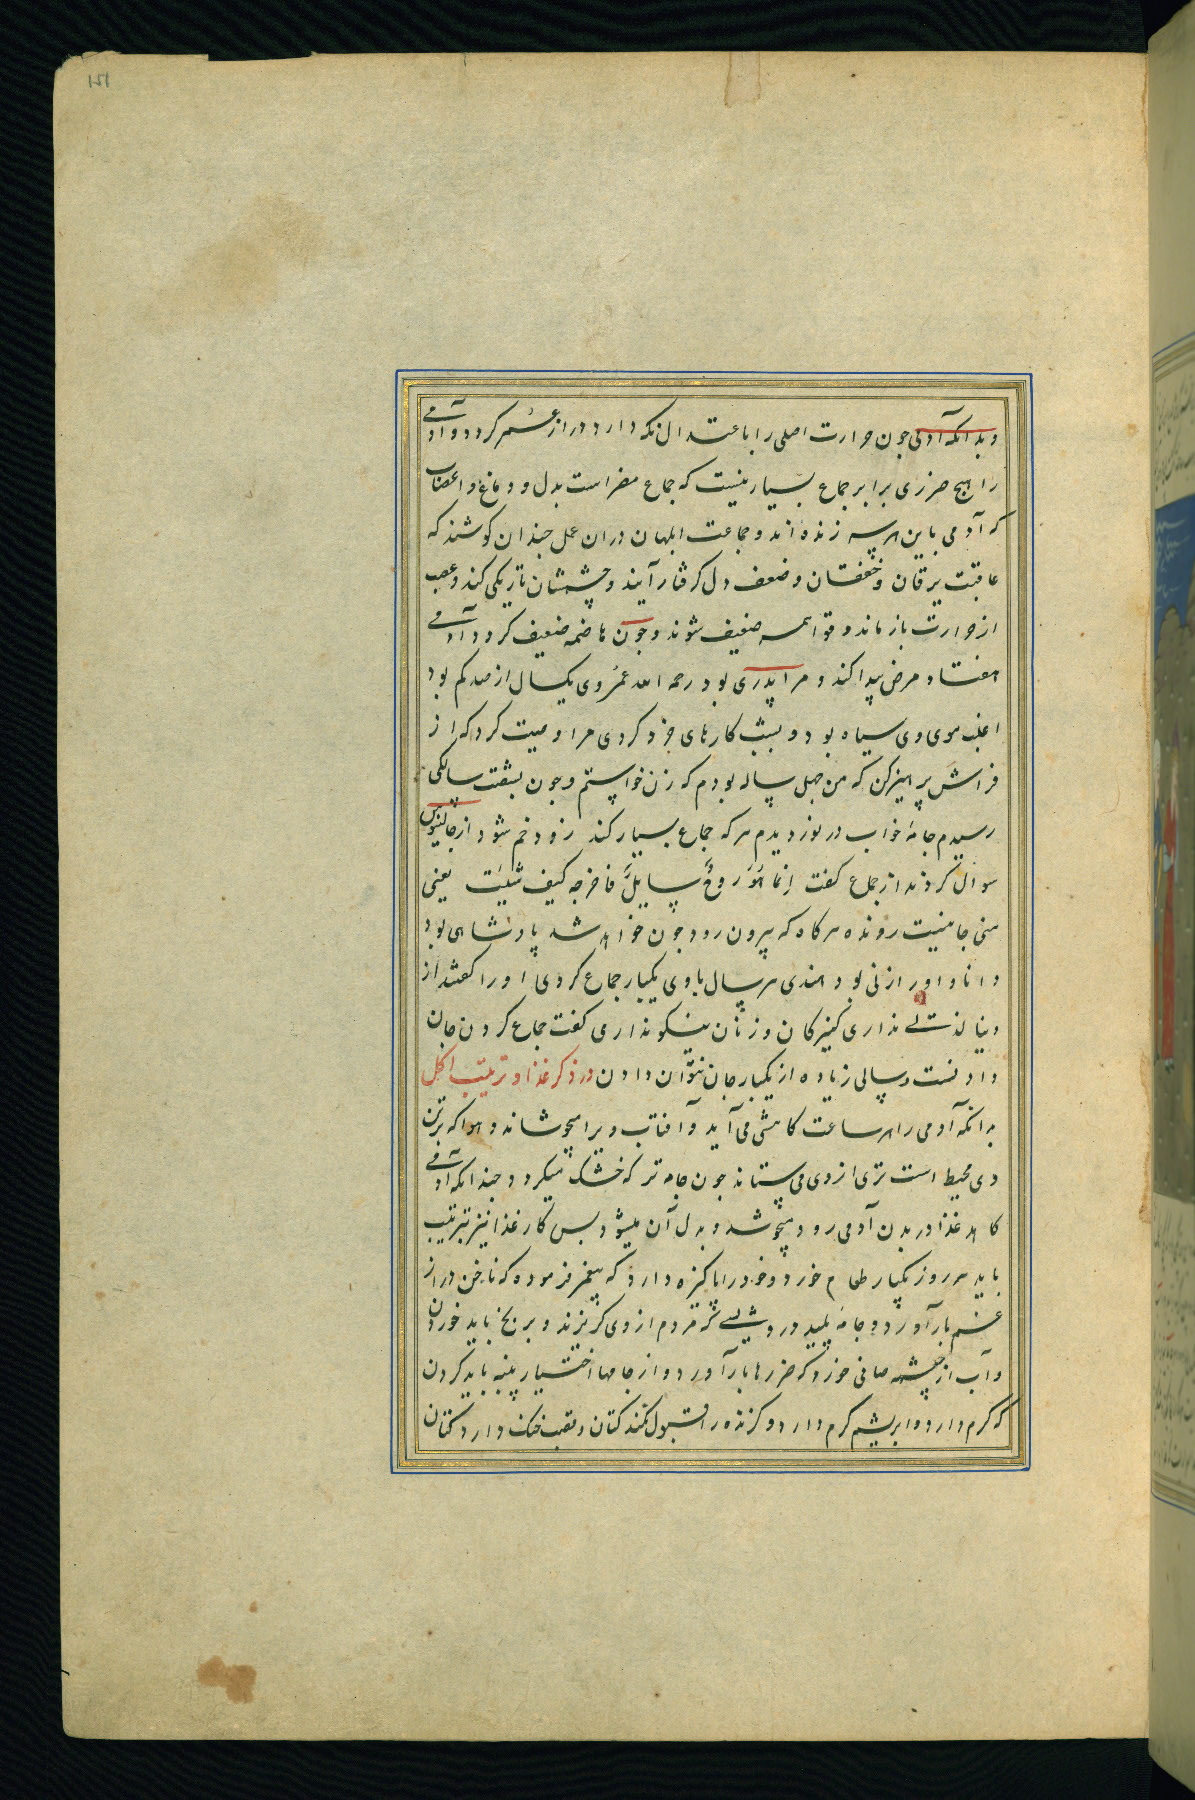 ١٢١
وبدانکه آدمی جون حرارت اصلی را باعتدال نکه دارد دراز عمر کردد و آدمی
را هیج ضرری برابر جماع بسیار نیست که جماع مضر است بدل و دماغ و اعصاب
که آدمی باین هر سه زنده اند و جماعت ابلهان دران عمل جندان کوشند که
عاقبت یرقان و خفقان و ضعف دل کرفتار آیند و چشمشان تاریکی کند و عصب
از حرارت باز ماند و قوا همه ضعیف شوند و جون هاضمه ضعیف کردد آدمی
هفتاد مرض پیدا کند و مرا پدری بود رحمه الله عمر وی یکسال از صد کم بود
اغلب موی وی سیاه بود و بشب کارهای خرد کردی مرا وصیت کرد که از
فراش پرهیز کن که من جهل ساله بودم که زن خواستم و جون بشصت سالکی
رسیدم جامه خواب در نوردیدم هر که جماع بسیار کند زود خم شود از جالینوس
سوال کردند از جماع کفت إنما هو روح سایل فاخرجه کیف شئیت یعنی
منی جانیست رونده هر کاه که بیرون رود جون خواهد شد پادشاهی بود
دانا و اورا زنی بود هندی هر سال باوی یکبار جماع کردی اورا کفتند از
دنیا لذت نداری کنیزکان و زنان نیکو نداری کفت جماع کردن جان
دادنست و سالی زیاده از یکبار جان نتوان دادن در ذکر غذا و ترتیب اکل
بدانکه آدمی را هر ساعت کاهشی می آید و آفتاب ویرا میجوشاند و هوا که بر تن
وی محیط است تری از وی می ستاند جون جامه تر که خشک میکردد و جندانکه آدمی
کاهد غذا در بدن آدمی رود میجوشد و بدل آن میشود بس کار غذا نیز بترتیب
باید هر روز یکبار طعام خورد و خود را پاکیزه دارد که پیغمبر فرموده که ناخن دراز
غم بار آورد و جامه پلید درویشی که مردم از وی کریزند و برنج باید خوردن
و آب از چشمه صافی خورد که ضررها بار آورد و از جامها اختیار پنبه باید کردن
که کرم دارد و ابریشم کرم دارد و کزنده را قبول نکند کتان و قصب خنک دارد کتان